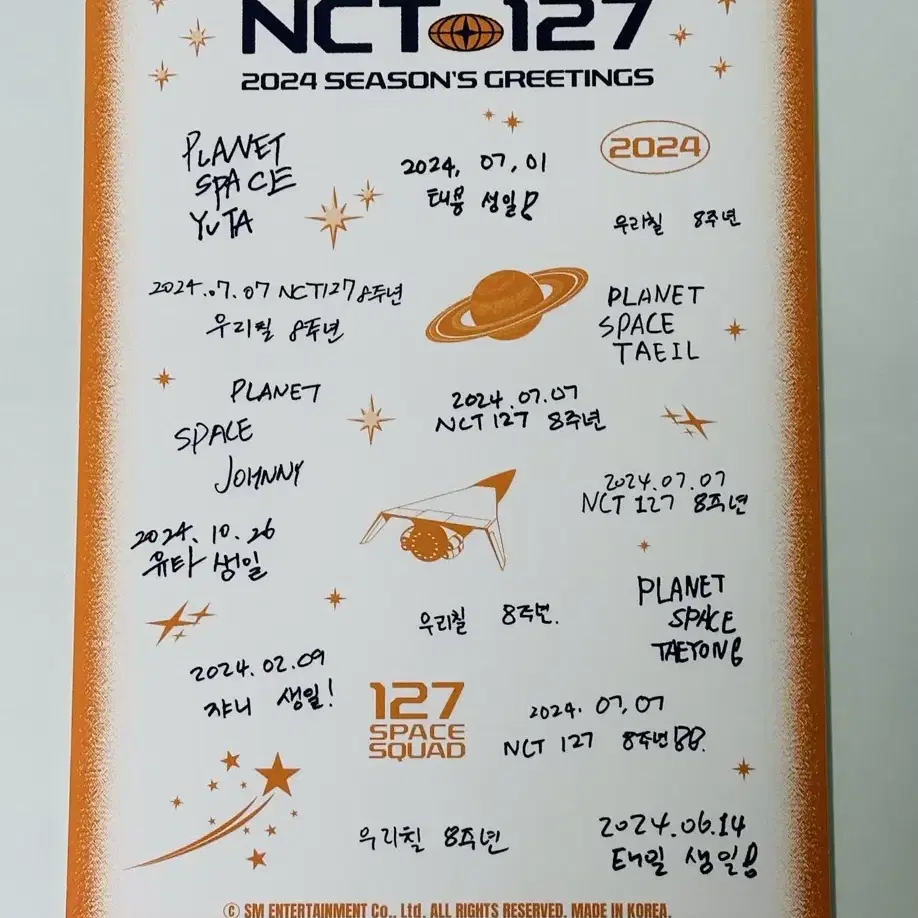 NCT 127
2024 SEASON'S GREETINGS
PLANET
SPACE
YUTA
2024. 07. 01
태용 생일!
2024
우리칠 8주년
2024.07.07 NCT127 8주년
우리칠 8주년
PLANET
SPACE
TAEIL
PLANET
SPACE
JOHNNY
2024.07.07
NCT 127 8주년
2024.07.07
NCT 127 8주년
2024. 10. 26
유타 생일
우리칠 8주년.
PLANET
SPACE
TAEYONG
2024.02.09
쟈니 생일!
127
SPACE
SQUAD
2024. 07. 07
NCT 127 8주년!!.
우리칠 8주년
2024.06.14
태일 생일!
© SM ENTERTAINMENT Co., Ltd. ALL RIGHTS RESERVED. MADE IN KOREA.